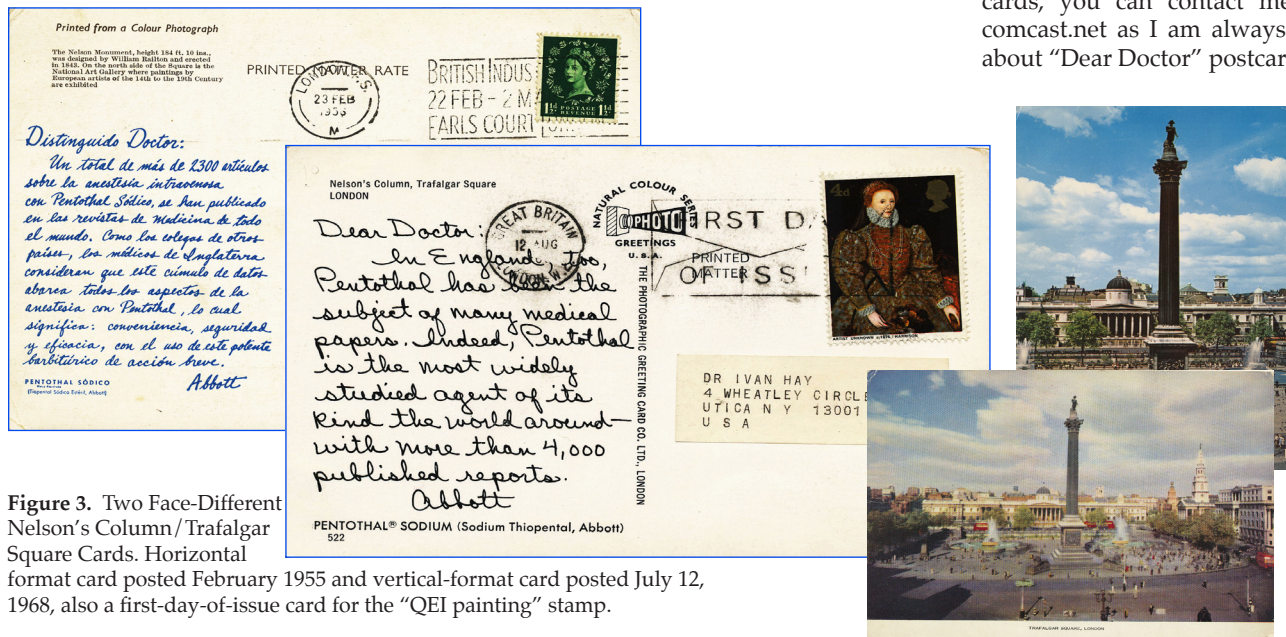 cards, you can contact me
comcast.net as I am always
about “Dear Doctor” postcar
Printed from a Colour Photograph
The Nelson Monument, height 184 ft. 10 ins.,
was designed by William Railton and erected
in 1843. On the north side of the Square is the
National Art Gallery where paintings by
European artists of the 14th to the 19th Century
are exhibited
PRINTED MATTER RATE
LONDON
23 FEB
M
BRITISH INDUS
22 FEB - 2 M
EARLS COURT
1½d POSTAGE REVENUE 1½d
Distinguido Doctor:
Un total de más de 2300 artículos
sobre la anestesia intravenosa
con Pentothal Sódico, se han publicado
en las revistas de medicina de todo
el mundo. Como los colegas de otros
países, los médicos de Inglaterra
consideran que este cúmulo de datos
abarca todos los aspectos de la
anestesia con Pentothal, lo cual
significa: conveniencia, seguridad
y eficacia, con el uso de este potente
barbitúrico de acción breve.
Abbott
PENTOTHAL SÓDICO
(Tiopental Sódico Estéril, Abbott)
Nelson's Column, Trafalgar Square
LONDON
NATURAL COLOUR SERIES
PHOTO
GREETINGS
U.S.A.
GREAT BRITAIN
12 AUG
LONDON W.C.
FIRST DA
OF ISS
PRINTED
MATTER
4½d
ARTIST UNKNOWN c.1575 / HARRISON
Dear Doctor:
In England, too,
Pentothal has been the
subject of many medical
papers. Indeed, Pentothal
is the most widely
studied agent of its
kind the world around—
with more than 4,000
published reports.
Abbott
PENTOTHAL® SODIUM (Sodium Thiopental, Abbott)
522
THE PHOTOGRAPHIC GREETING CARD CO. LTD., LONDON
DR IVAN HAY
4 WHEATLEY CIRCLE
UTICA N Y 13001
U S A
TRAFALGAR SQUARE, LONDON
Figure 3. Two Face-Different
Nelson's Column/Trafalgar
Square Cards. Horizontal
format card posted February 1955 and vertical-format card posted July 12,
1968, also a first-day-of-issue card for the “QEI painting” stamp.